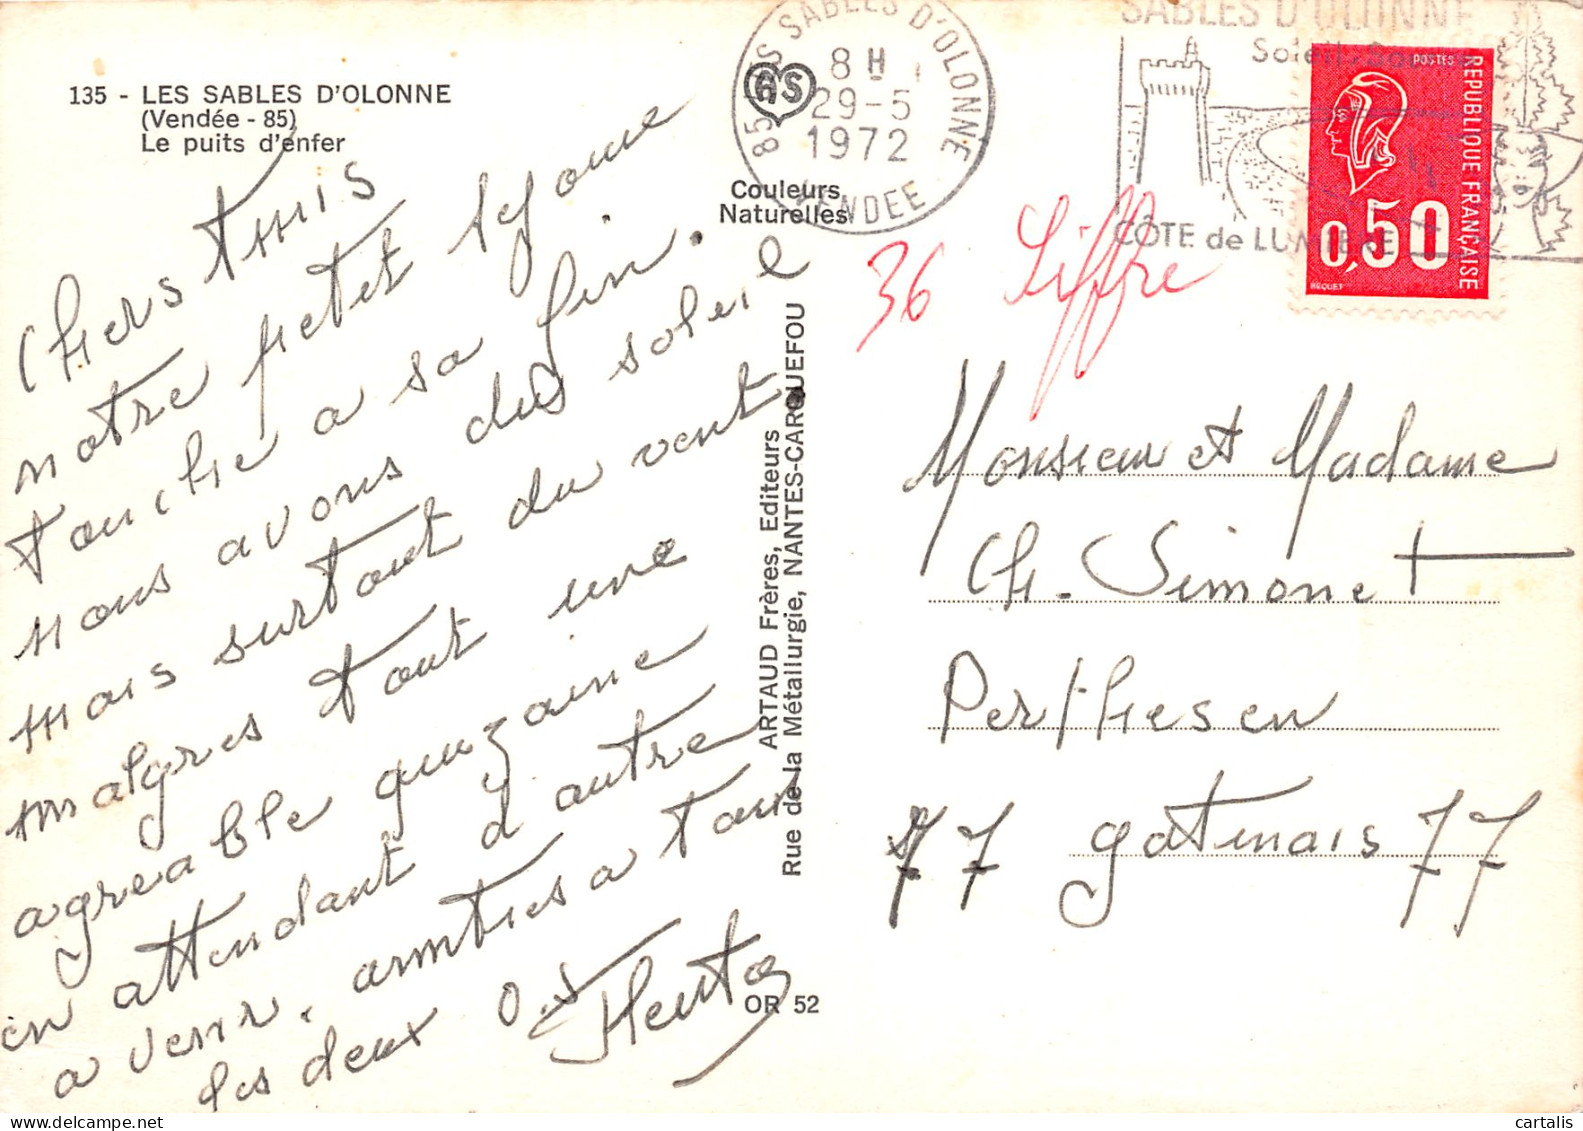 135 - LES SABLES D'OLONNE
(Vendée - 85)
Le puits d'enfer
Chers Amis
notre petit sejour
touche a sa fin.
nous avons du soleil
mais surtout du vent
malgres tout une
agreable quinzaine
en attendant d autre
a venir. amities a tous
les deux
85 LES SABLES D'OLONNE
8 H
29-5
1972
VENDEE
GAS
Couleurs
Naturelles
ARTAUD Frères, Editeurs
Rue de la Métallurgie, NANTES-CARQUEFOU
OR 52
SABLES D'OLONNE
Soleil
CÔTE de LUMIÈRE
POSTES
REPUBLIQUE FRANÇAISE
0,50
BEQUET
36 Liffre
Monsieur et Madame
Ch. Simonet
Perthes en
77 gatinais 77